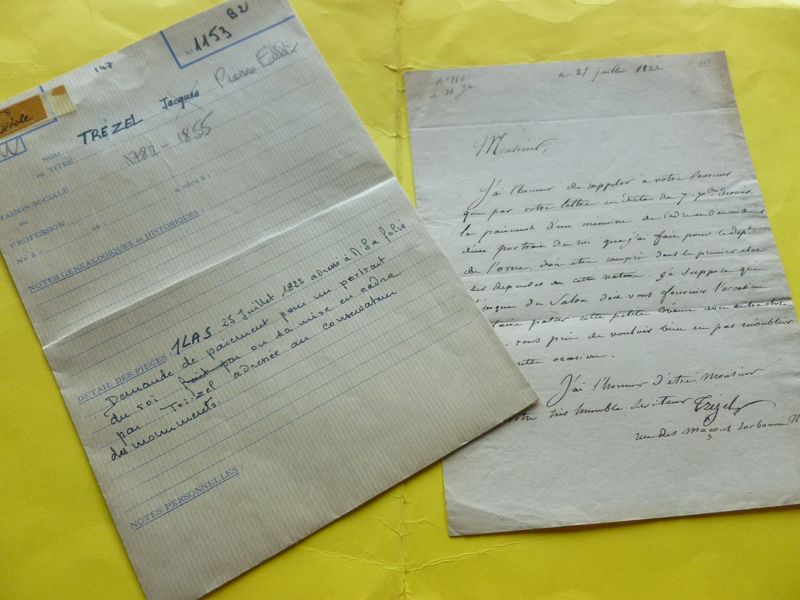 147
N° 1153 B2
NOM et TITRE TRÉZEL Jacques Pierre Félix
1782 - 1855
MAISON SOCIALE
ou
PROFESSION
a vécu à :
Né à :
NOTES GÉNÉALOGIQUES et HISTORIQUES
DÉTAIL DES PIÈCES : 1LAS 25 Juillet 1822 adressé à
Demande de paiement pour un portrait
du roi fait par ou sa mise en cadre
par Trézel adressée au conservateur
des monuments.
NOTES PERSONNELLES :
ce 25 juillet 1822.
Monsieur,
J'ai l'honneur de rappeler à votre
que par votre lettre en date du 7 dernier
le paiement d'un mémoire de
d'un portrait du roi que j'ai fait pour le dept
de l'orne, doit être compris dans le premier
des dépenses de cette nature. Je suppose que
du Salon doit vous fournir l'occasion
faire passer cette petite créance avec
vous prie de vouloir bien ne pas m'oublier
cette occasion.
J'ai l'honneur d'être Monsieur
votre très humble serviteur Trézel
rue des maçons Sorbonne